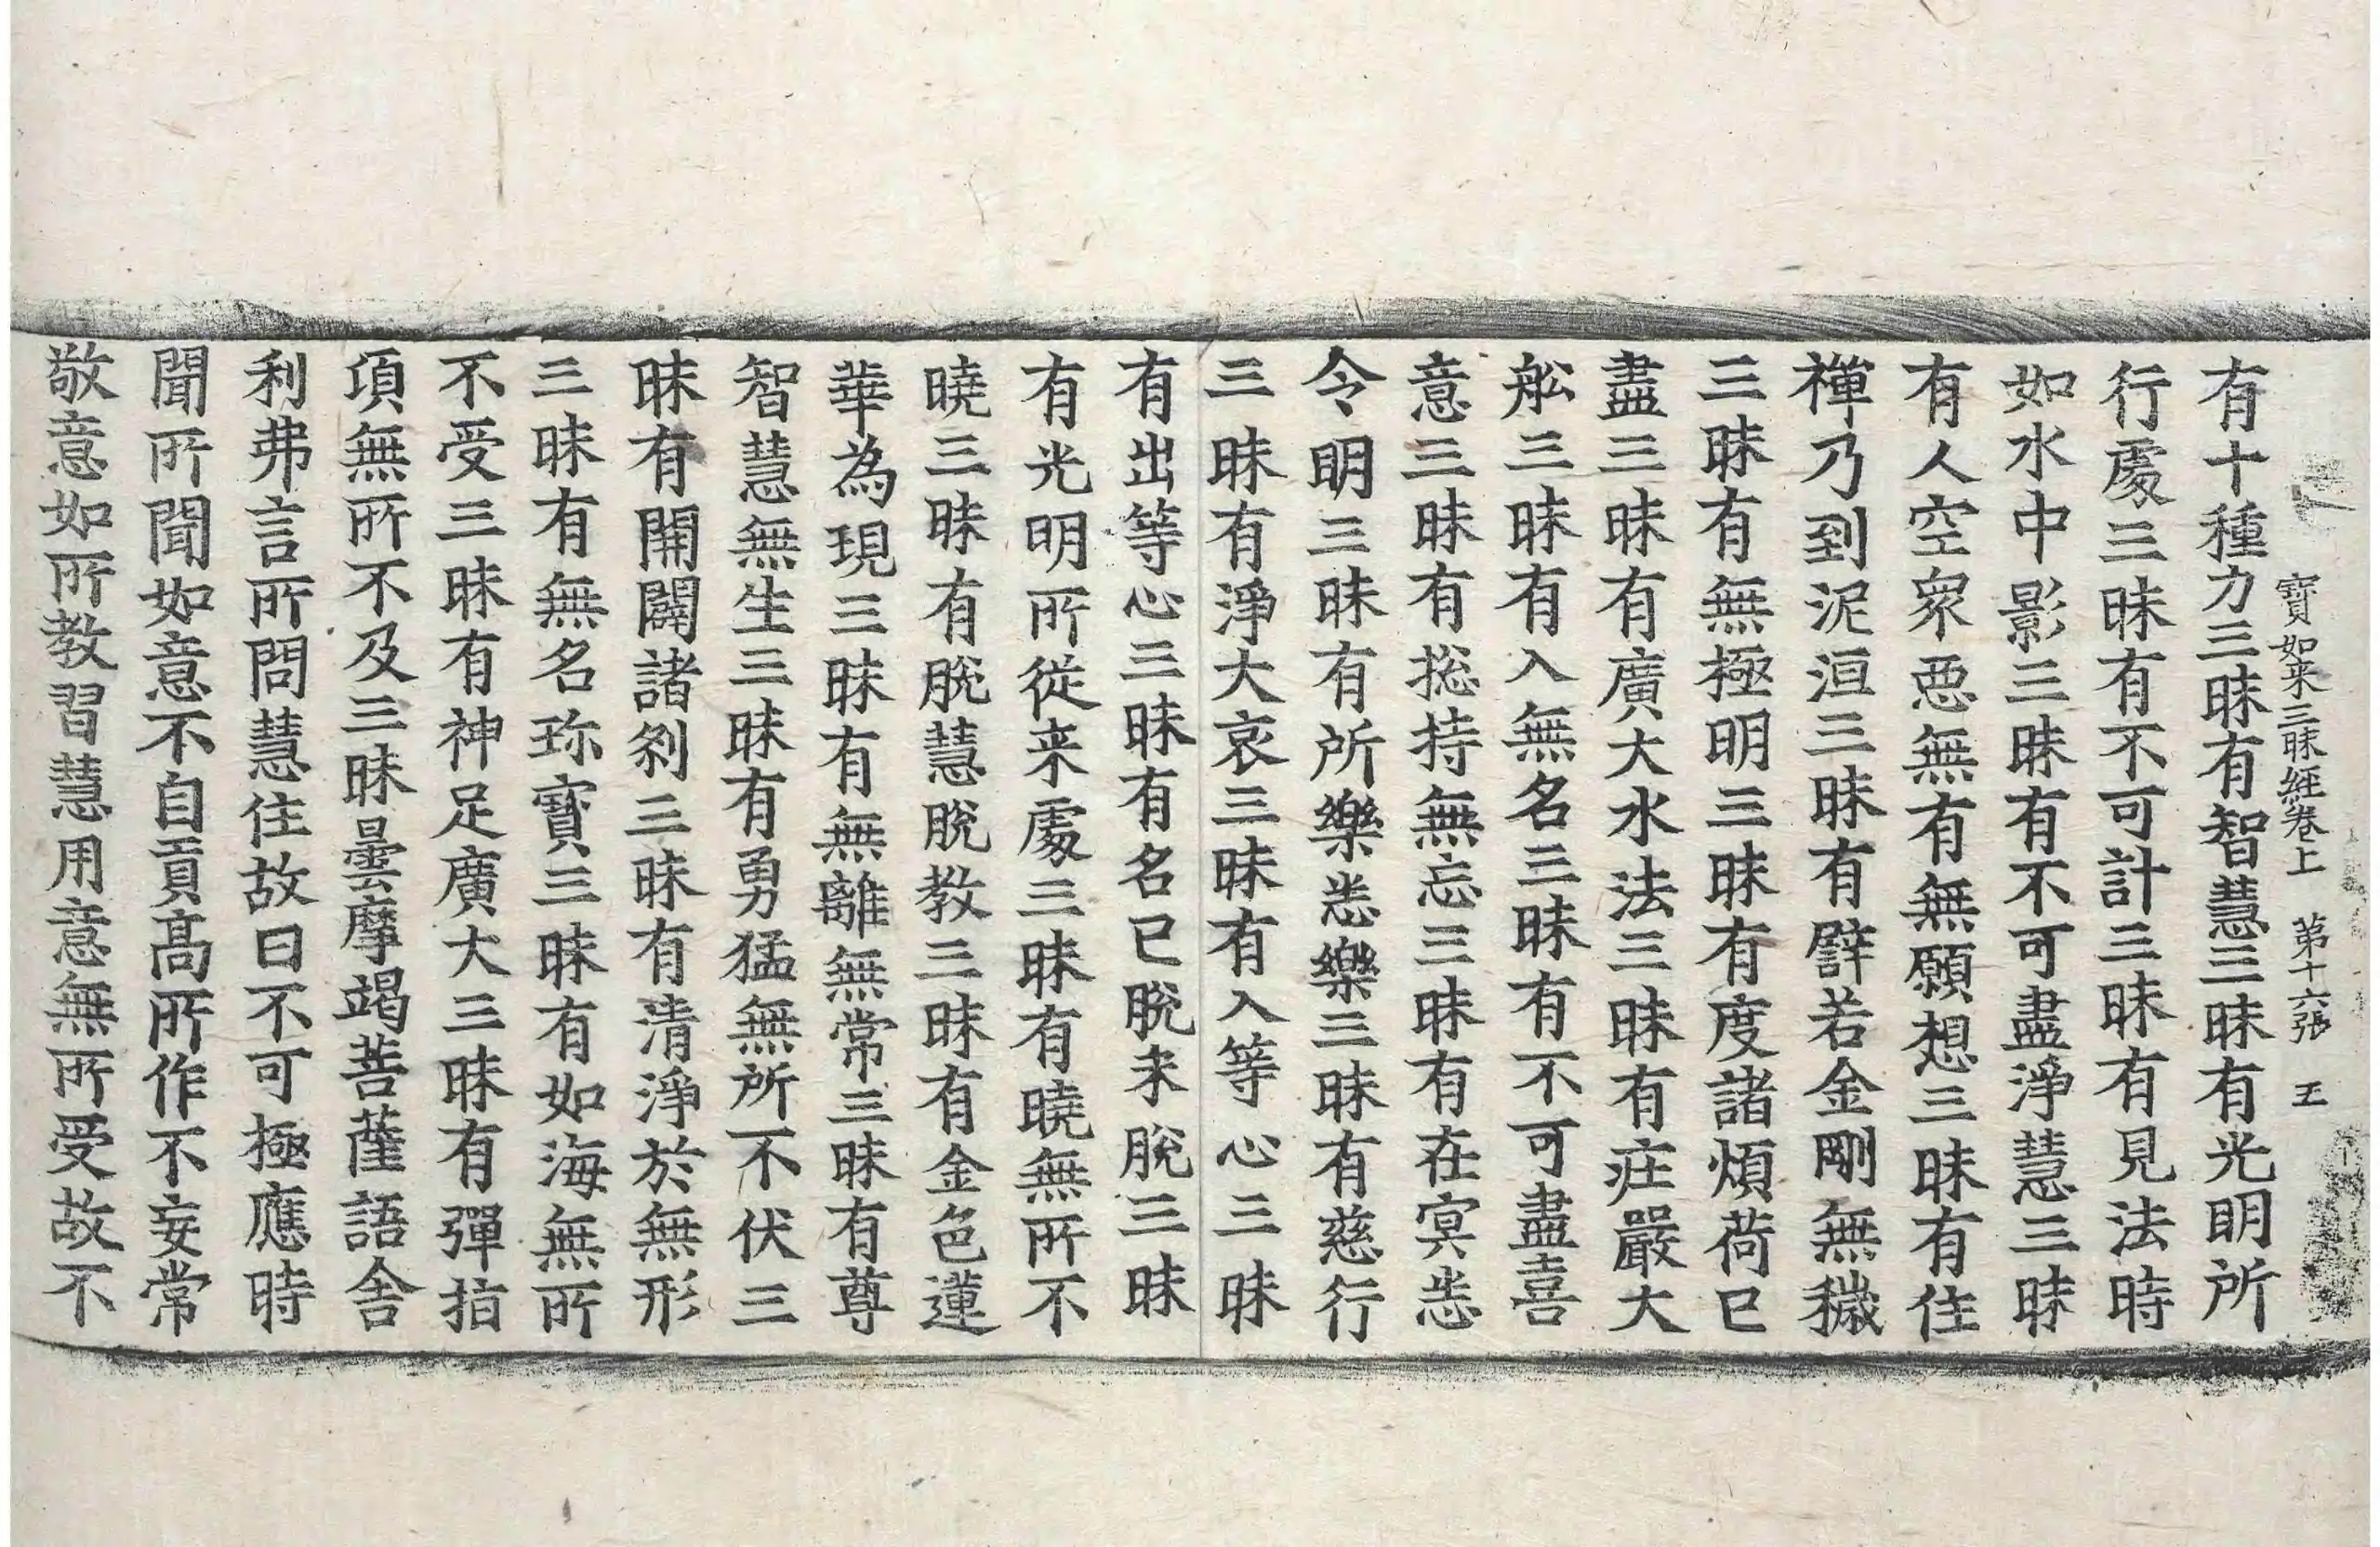 寶如来三昧經卷上　第十六張　王
有十種力三昧有智慧三昧有光明所
行處三昧有不可計三昧有見法時
如水中影三昧有不可盡淨慧三昧
有人空衆恶無有無願想三昧有住
禪乃到泥洹三昧有譬若金剛無穢
三昧有無極明三昧有度諸煩荷已
盡三昧有廣大水法三昧有庄嚴大
舩三昧有入無名三昧有不可盡喜
意三昧有揔持無忘三昧有在冥悉
令明三昧有所樂悉樂三昧有慈行
三昧有淨大哀三昧有入等心三昧
有出等心三昧有名已脫未脫三昧
有光明所從来處三昧有曉無所不
曉三昧有脫慧脫教三昧有金色蓮
華為現三昧有無離無常三昧有尊
智慧無生三昧有勇猛無所不伏三
昧有開闢諸剎三昧有清淨於無形
三昧有無名珎寶三昧有如海無所
不受三昧有神足廣大三昧有彈指
項無所不及三昧曇摩竭菩薩語舍
利弗言所問慧住故曰不可極應時
聞所聞如意不自貢高所作不妄常
敬意如所教習慧用意無所受故不